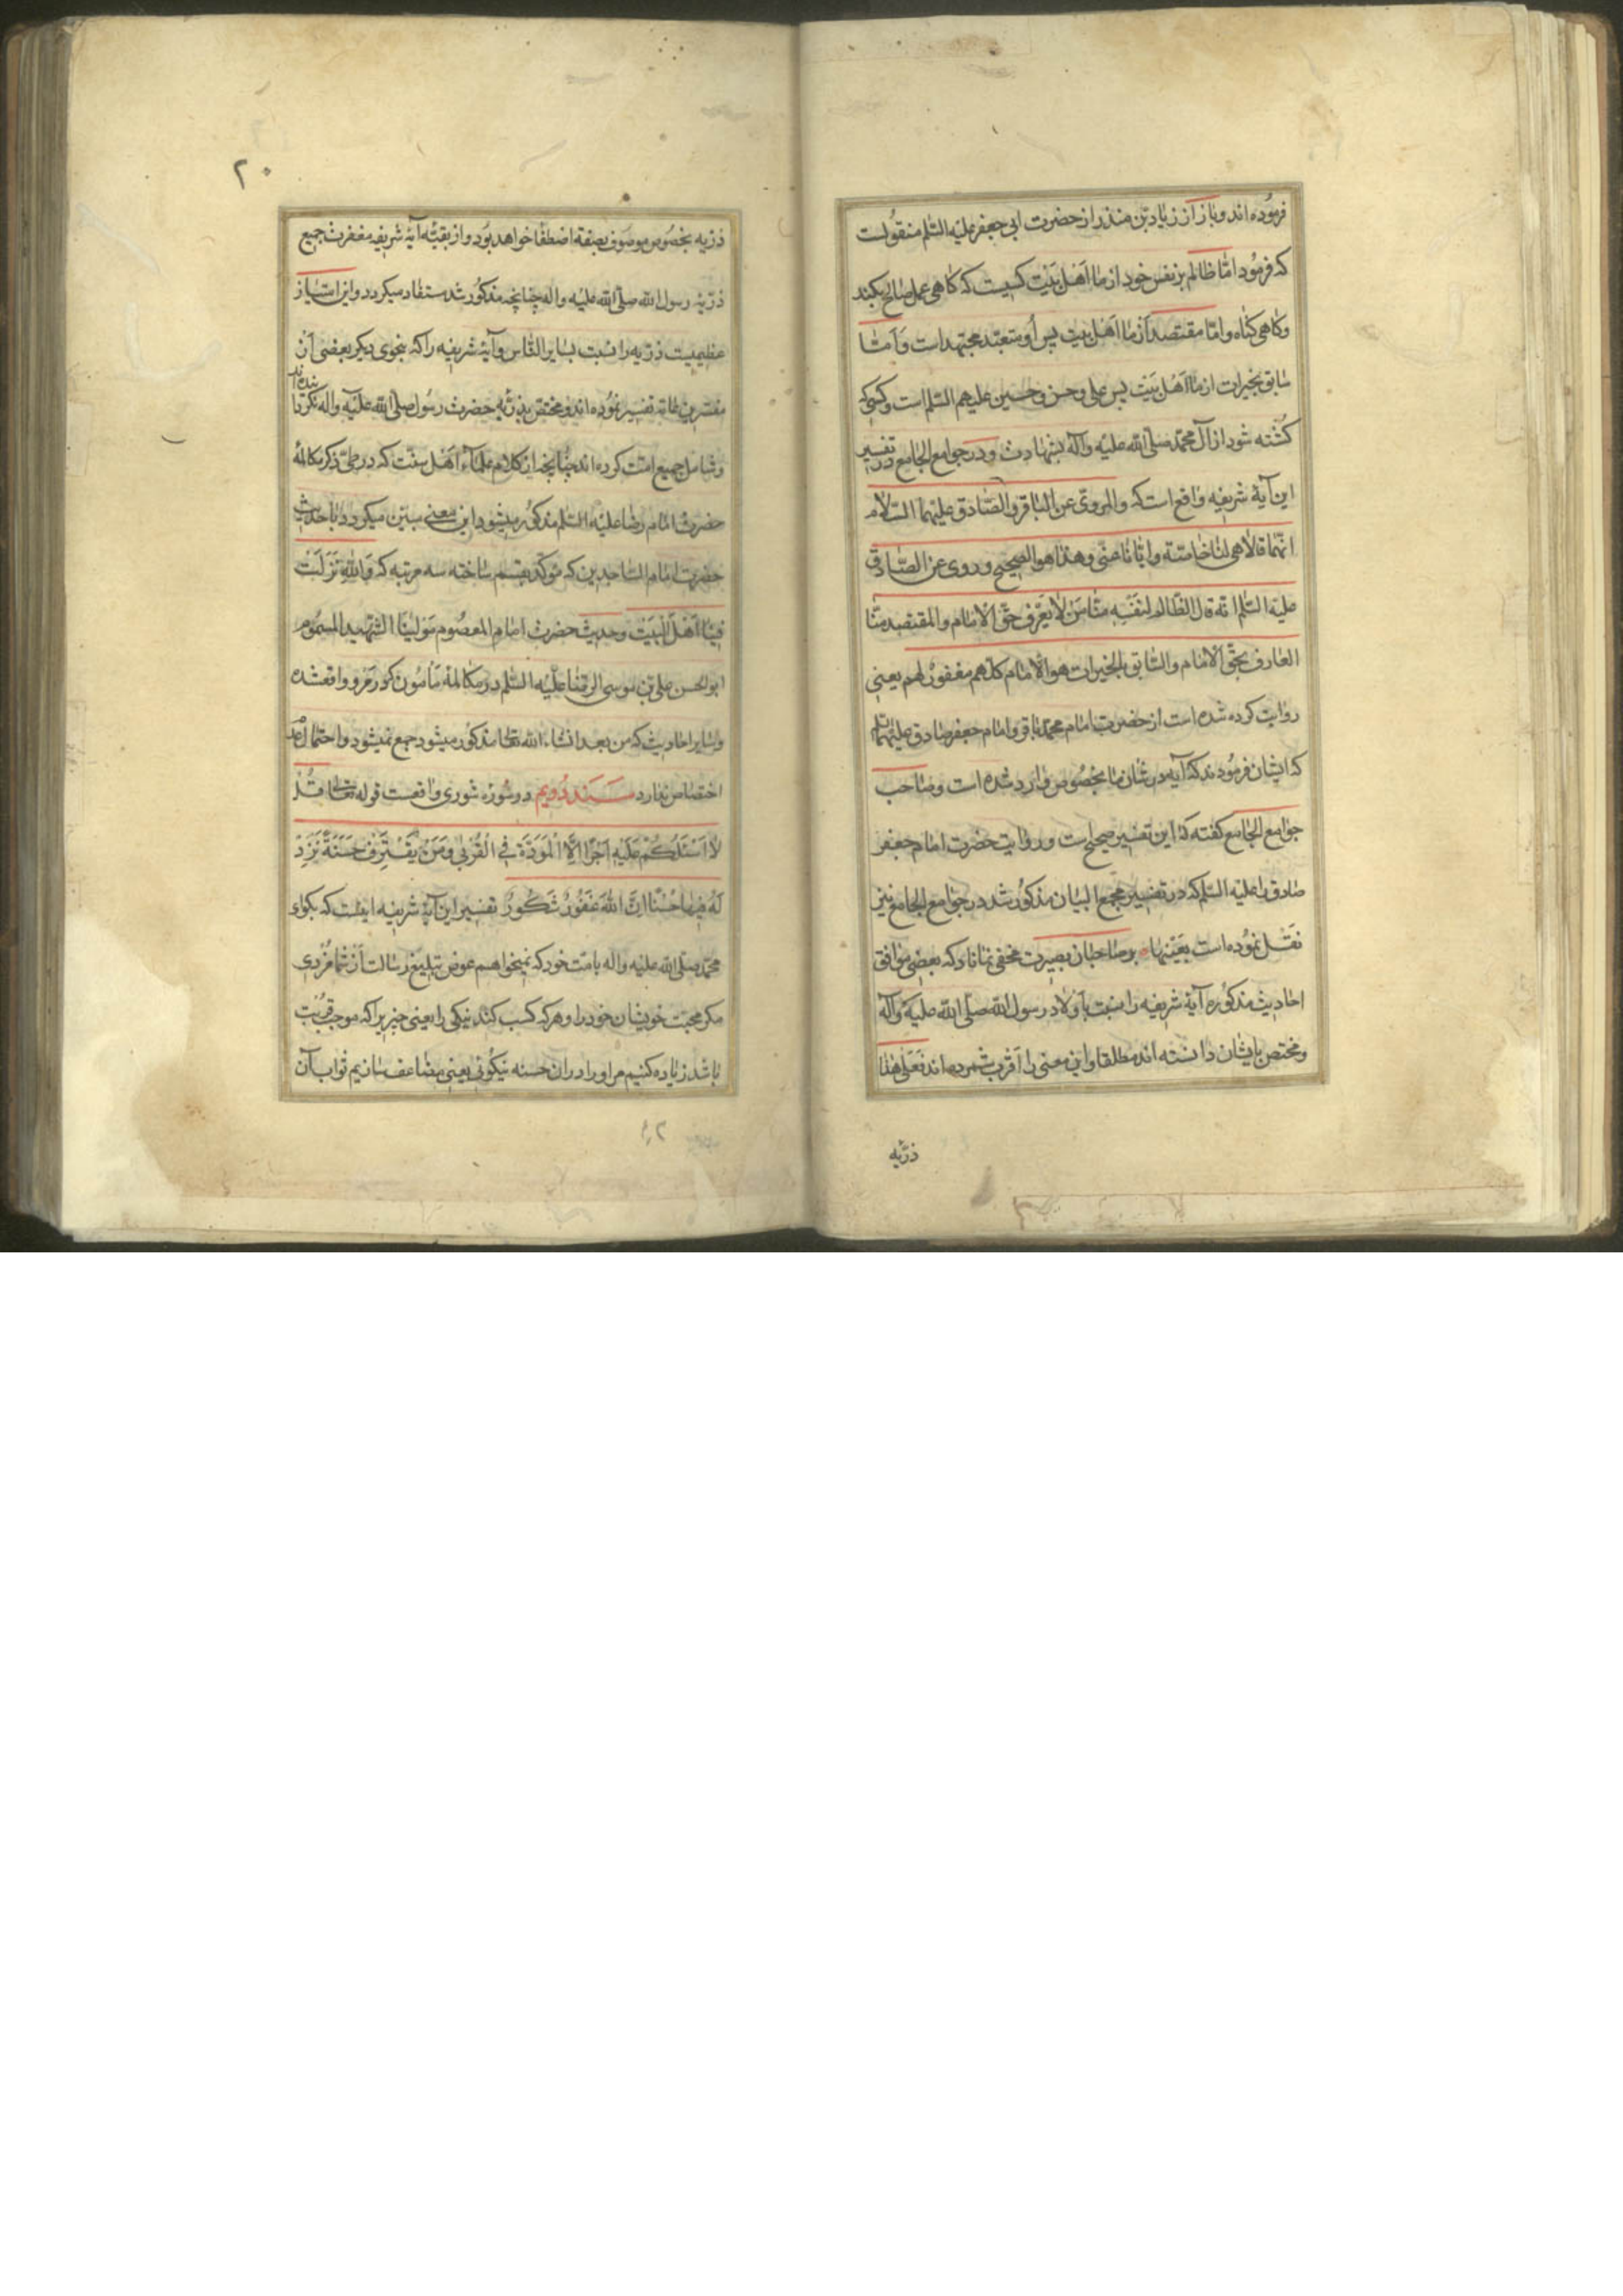 فرموده اند و باز از زیاد بن منذر از حضرت ابی جعفر علیه السّلم منقولست
که فرمود امّا ظالم بر نفس خود از ما اهل بیت کسیست که کاهی عمل صالح بکند
و کاهی کناه و امّا مقتصد از ما اهل بیت پس او متعبّد مجتهد است و امّا
سابق بخیرات از ما اهل بیت پس علی و حسن و حسین علیهم السّلم است و کسیکه
کشته شود از آل محمّد صلّی الله علیه وآله بشهادت و در جوامع الجامع در تفسیر
این آیهٔ شریفه واقع است که والمروی عن الباقر والصّادق علیهما السّلام
انّهما قالا هی لنا خاصّة وایّانا عنی وهذا هو الصحیح وروی عن الصّادق
علیه السّلم انّه قال الظّالم لنفسه منّا من لا یعرف حقّ الامام والمقتصد منّا
العارف بحقّ الامام والسّابق بالخیرات هو الامام کلّهم مغفور لهم یعنی
روایت کرده شده است از حضرت امام محمّد باقر و امام جعفر صادق علیهما السلم
که ایشان فرمودند که آیه در شان ما بخصوص وارد شده است و صاحب
جوامع الجامع کفته که این تفسیر صحیح است و روایت حضرت امام جعفر
صادق را علیه السّلم که در تفسیر مجمع البیان مذکور شد در جوامع الجامع نیز
نقل نموده است بعینها بر صاحبان بصیرت مخفی نماناد که بعضی موافق
احادیث مذکوره آیهٔ شریفه را نسبت باولاد رسول الله صلّی الله علیه وآله
و مختص بایشان دانسته اند مطلقا و این معنی را اقرب شمرده اند فعلی هذا
ذرّیه
۲۰
ذرّیه بخصوص موصوف بصفة اصطفا خواهد بود و از بقیّه آیهٔ شریفه مغفرت جمیع
ذرّیهٔ رسول الله صلّی الله علیه واله چنانچه مذکور شد مستفاد میکردد و این امتیاز
عظیمیست ذرّیه را نسبت بسایر النّاس و آیهٔ شریفه را که بنحوی دیکر بعضی از
مفسّرین عامّه تفسیر نموده اند و مختص بذرّیهٔ حضرت رسول صلّی الله علیه واله نکردانیده اند
و شامل جمیع امّت کرده اند چنانچه از کلام علماء اهل سنّت که در طیّ ذکر مکالمهٔ
حضرت امام رضا علیه السّلم مذکور میشود این معنی مبیّن میکردد با حدیث
حضرت امام السّاجدین که موکّد بقسم ساخته سه مرتبه که والله نزلت
فینا اهل البیت و حدیث حضرت امام المعصوم مولینا الشّهید المسموم
ابو الحسن علی بن موسی الرضا علیه السّلم در مکالمهٔ مأمون که در مرو واقعشده
و سایر احادیث که من بعد انشاء الله تعالی مذکور میشود جمع نمیشود و احتمال عدم
اختصاص ندارد سند دویم در سورهٔ شوری واقعست قوله تعالی قل
لا اسئلکم علیه اجرًا الّا المودّة فی القربی ومن یقترف حسنةً نزد
له فیها حسنًا انّ الله غفورٌ شکورٌ تفسیر این آیهٔ شریفه اینست که بکو ای
محمّد صلّی الله علیه واله بامّت خود که نمیخواهم عوض تبلیغ رسالت از شما مزدی
مکر محبّت خویشان خود را و هر که کسب کند نیکی را یعنی چیزیرا که موجب قربت
باشد زیاده کنیم مر او را در ان حسنه نیکوئی یعنی مضاعف سازیم ثواب آن